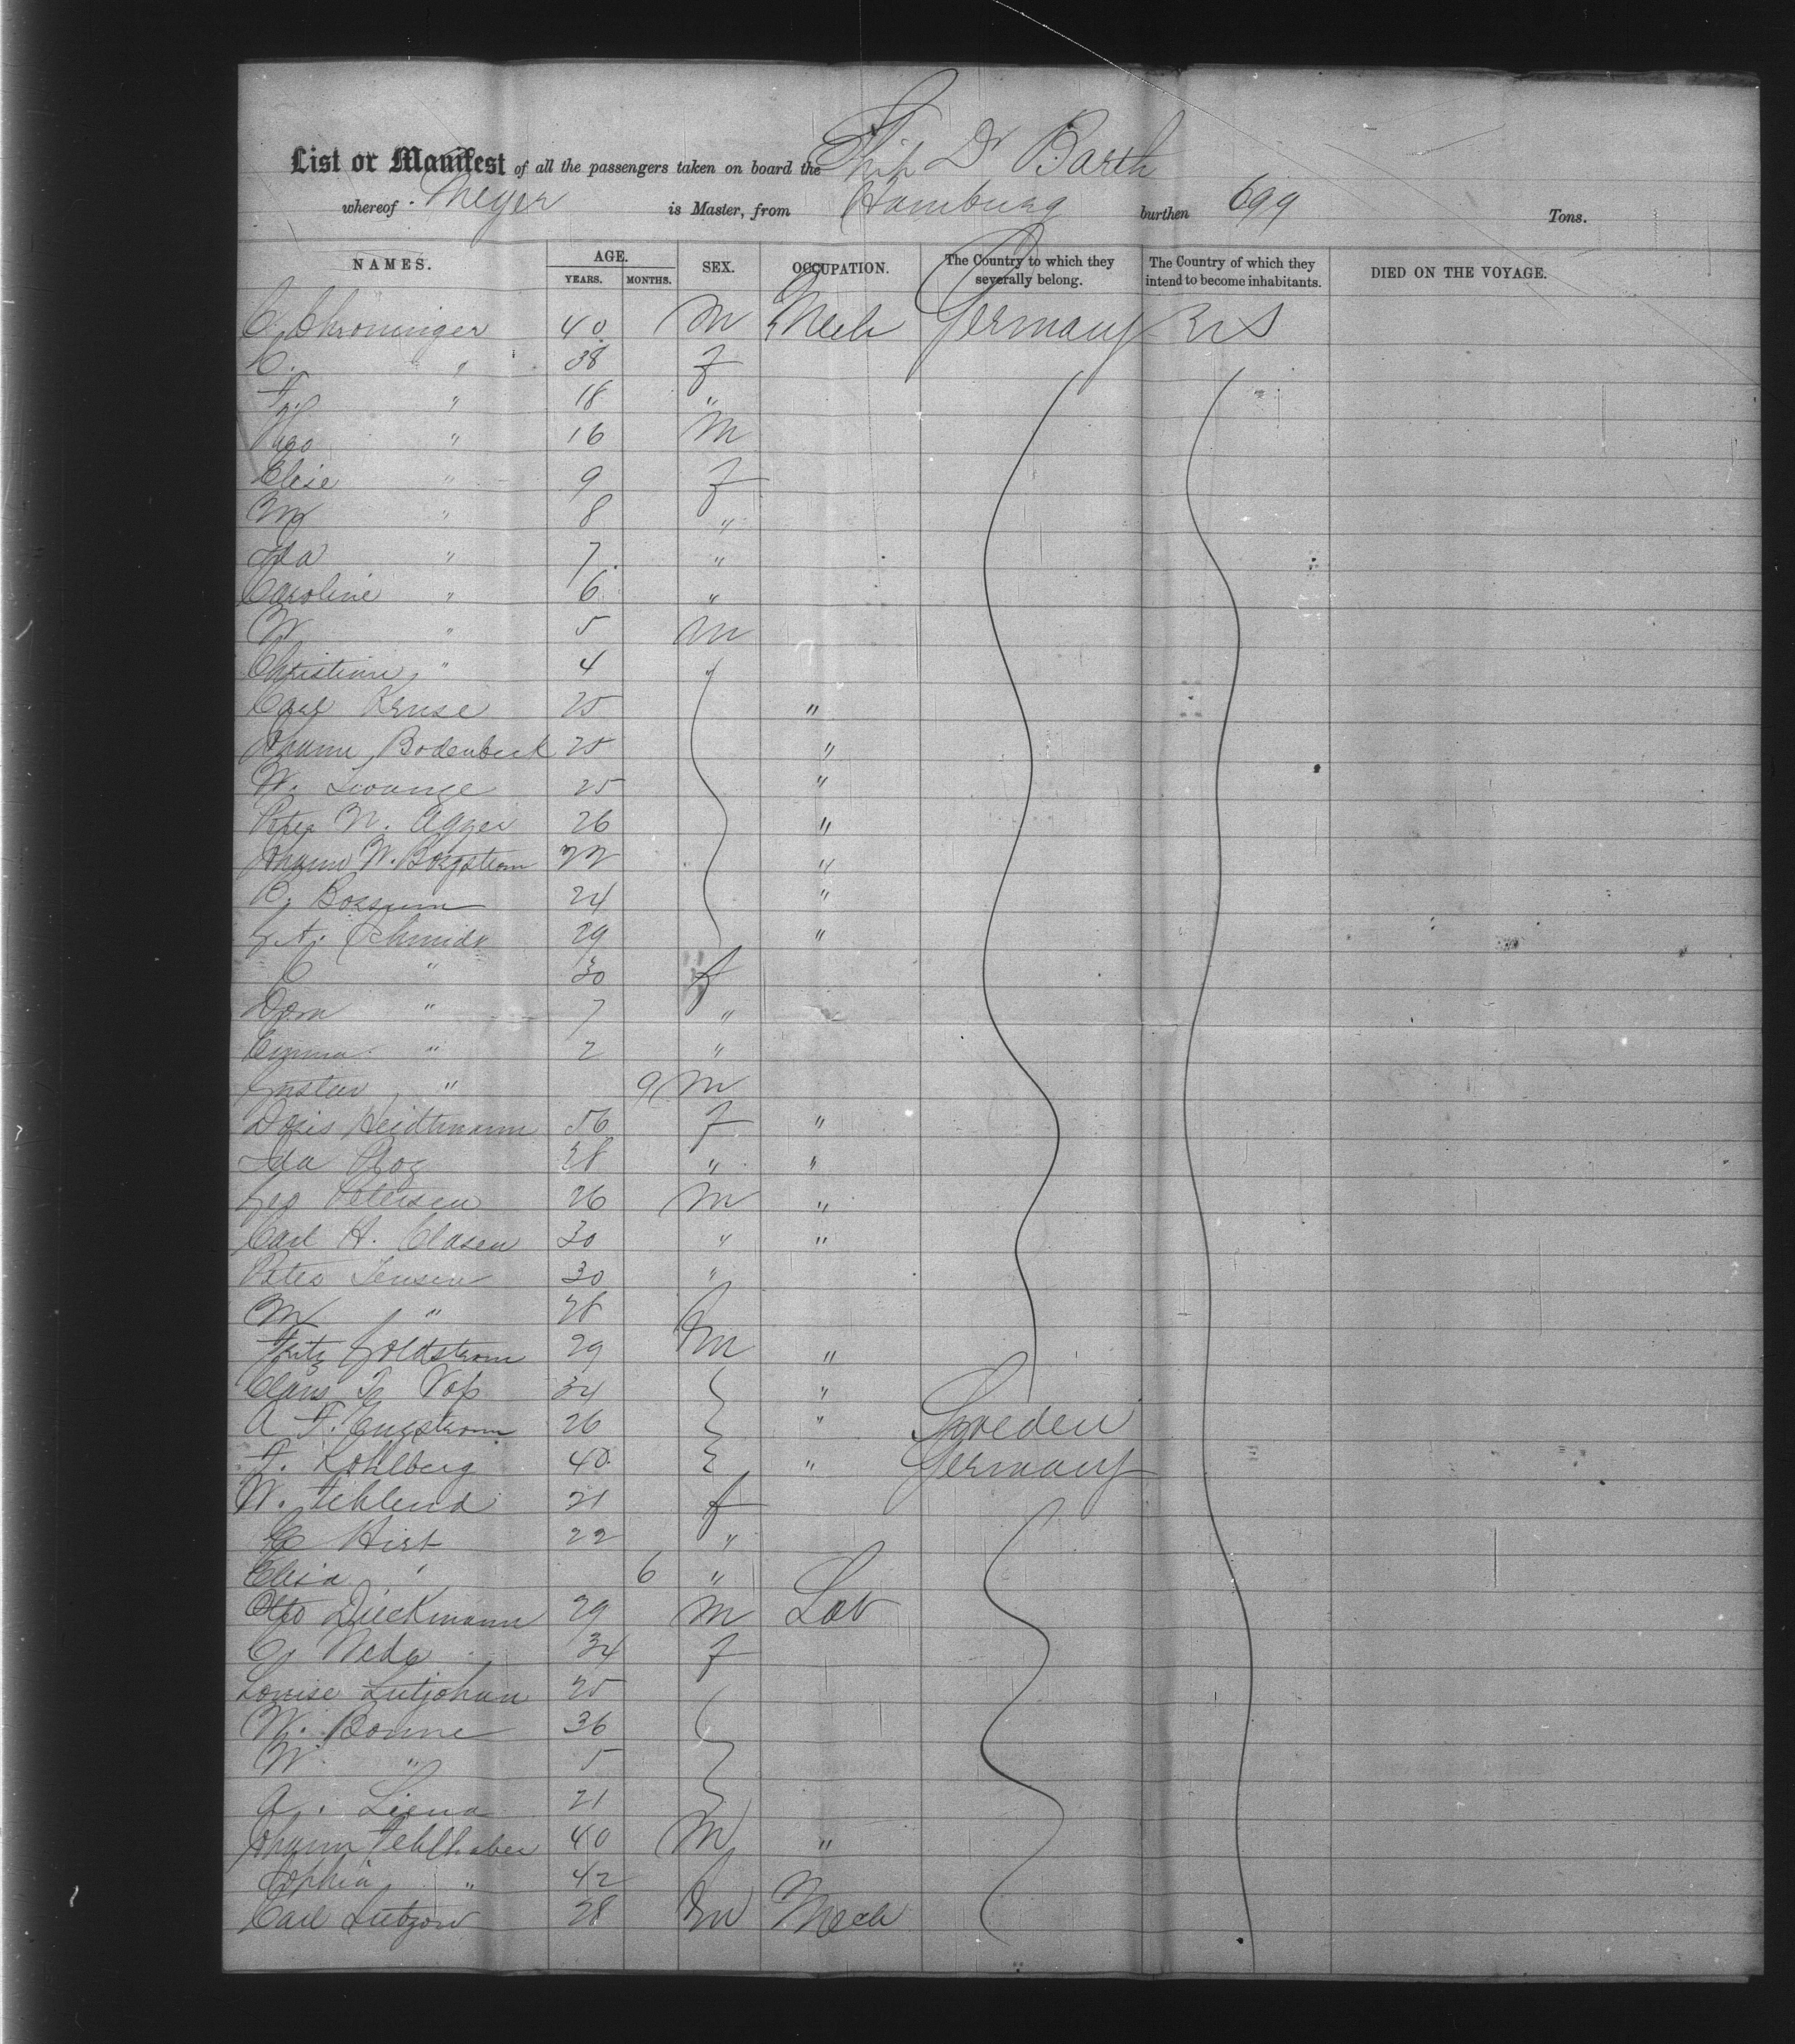 List or Manifest of all the passengers taken on board the Ship Dr Barth
whereof Meyer is Master, from Hamburg burthen 699 Tons.
NAMES. AGE. YEARS. MONTHS. SEX. OCCUPATION. The Country to which they severally belong. The Country of which they intend to become inhabitants. DIED ON THE VOYAGE.
C. Shroninger 40 M Mech Germany U S
C. " 38 f
" 18 "
Hugo " 16 M
Elise " 9 f
M " 8 "
Ida " 7 "
Caroline " 6 "
W " 5 M
Christian " 4 "
Carl Kruse 25 "
Johann Bodenbeck 25 "
W. 25 "
Peter N. Agger 26 "
Johann W. Borgstrom 22 "
Bossum 24 "
G. A. Schmidt 29 "
C " 30 f
Dora " 7 "
Emma " 2 "
Gustav " 9 M
Doris Heidtmann 56 f "
Ida 28 " "
Geo Petersen 26 M "
Carl H. Clasen 30 " "
Peter Jensen 30 "
M " 28 f
Fritz Goldstrom 29 M "
Claus Voss 34 "
A F. Engstrom 26 " Sweden
F. Kohlberg 40 " Germany
W. 21 f
Hirt 22 "
Elisa " 6 "
Otto Dieckmann 29 M Lab
C. 34 f
Louise Lutjohan 25
W. Bonne 36
W " 5
A. 21
Johann Fehlhaber 40 M "
Sophia " 42 f
Carl Lutzow 28 M Mech